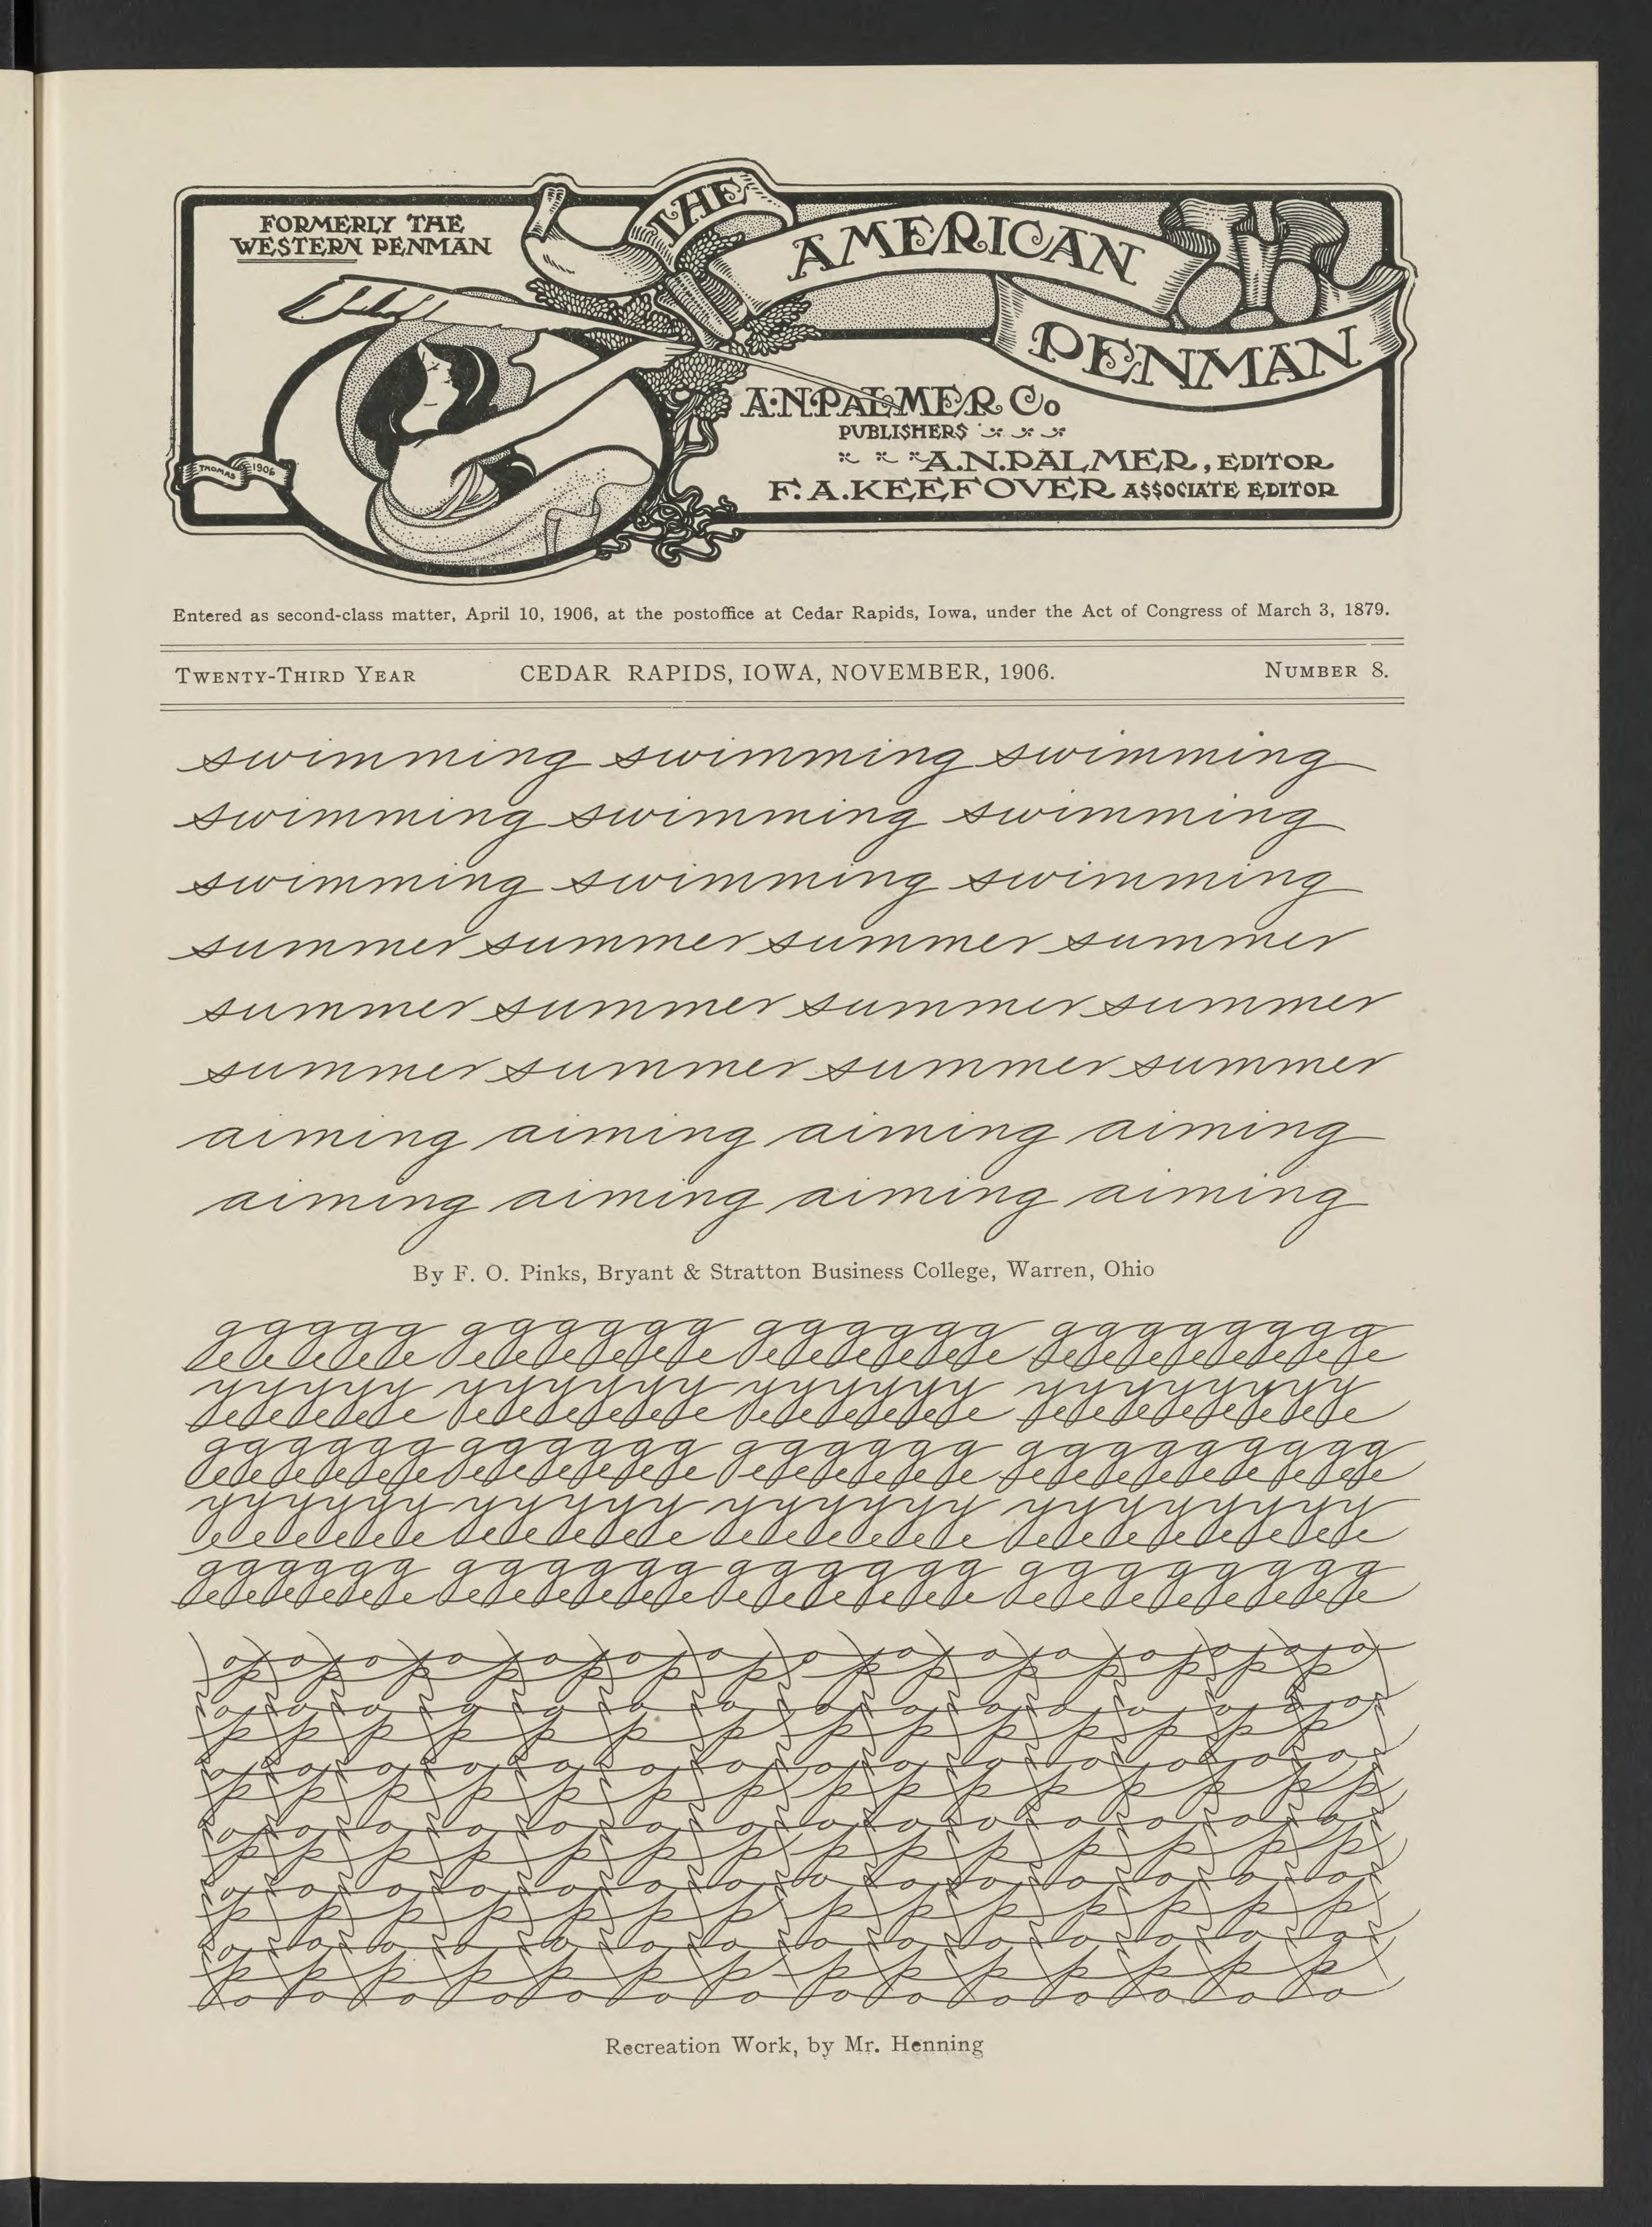 FORMERLY THE
WESTERN PENMAN
THE
AMERICAN
PENMAN
A.N. PALMER Co
PUBLISHERS
A.N. PALMER, EDITOR
F. A. KEEFOVER ASSOCIATE EDITOR
THOMAS 1906
Entered as second-class matter, April 10, 1906, at the postoffice at Cedar Rapids, Iowa, under the Act of Congress of March 3, 1879.
TWENTY-THIRD YEAR CEDAR RAPIDS, IOWA, NOVEMBER, 1906. NUMBER 8.
swimming swimming swimming
swimming swimming swimming
swimming swimming swimming
summer summer summer summer
summer summer summer summer
summer summer summer summer
aiming aiming aiming aiming
aiming aiming aiming aiming
By F. O. Pinks, Bryant & Stratton Business College, Warren, Ohio
Recreation Work, by Mr. Henning